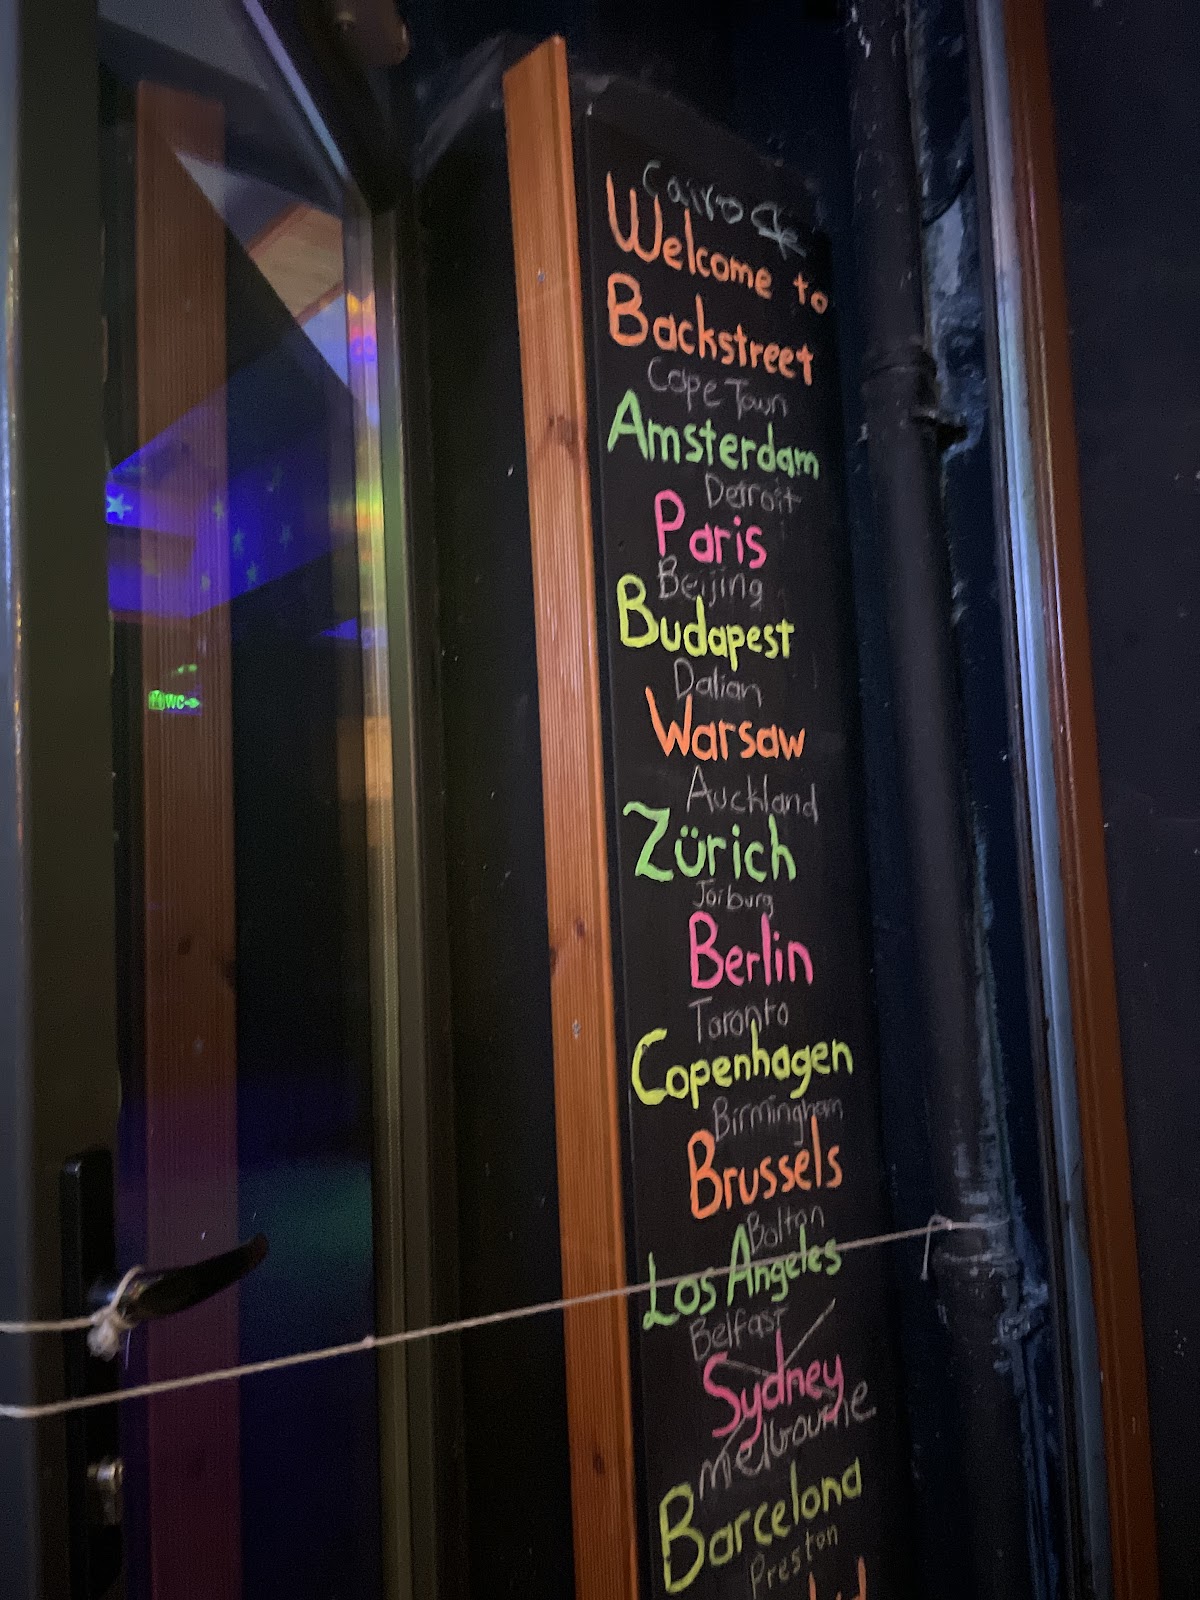 WC
Cairo
Welcome to
Backstreet
Cape Town
Amsterdam
Detroit
Paris
Beijing
Budapest
Dalian
Warsaw
Auckland
Zürich
Joiburg
Berlin
Toronto
Copenhagen
Birmingham
Brussels
Bolton
Los Angeles
Belfast
Sydney
Melbourne
Barcelona
Preston